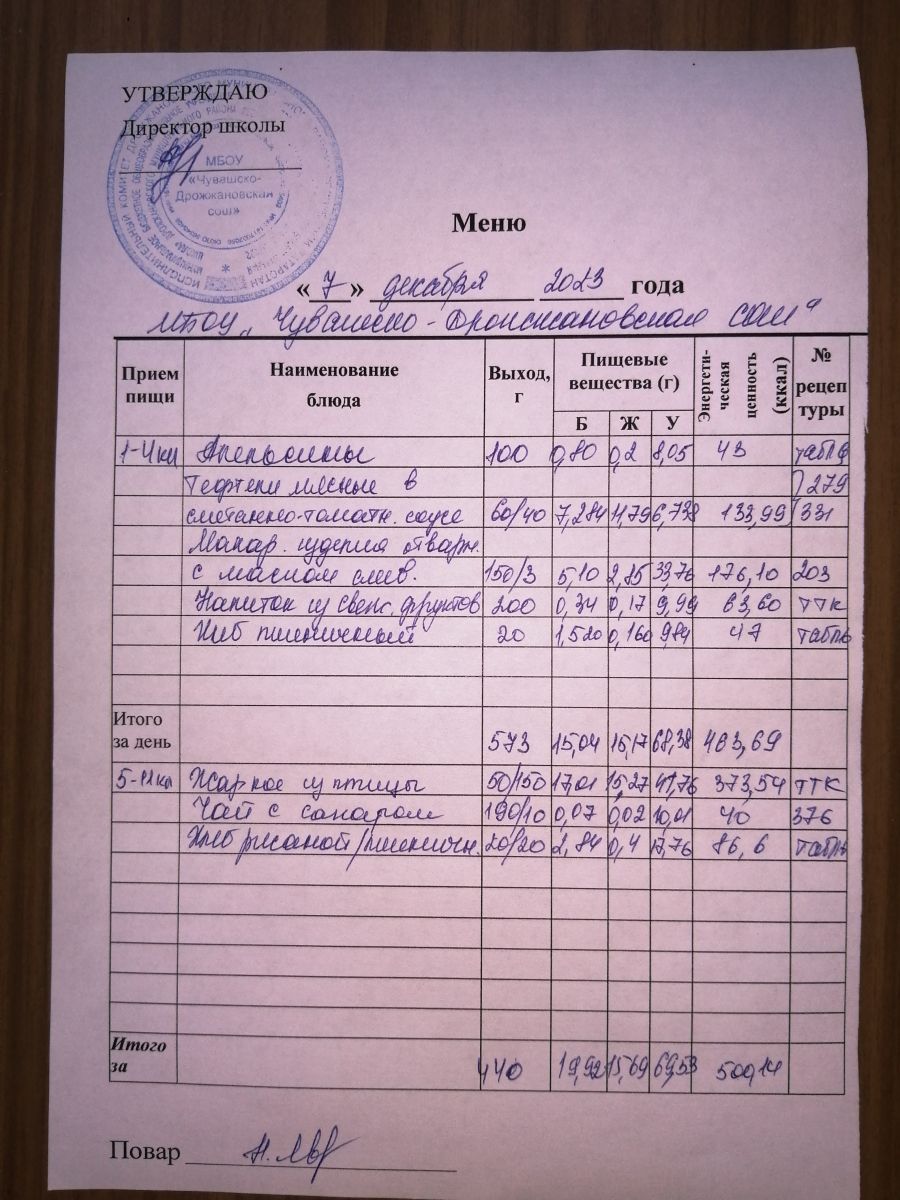 УТВЕРЖДАЮ
Директор школы
МБОУ
«Чувашско-
Дрожжановская
сош»
Меню
« 7 » декабря 2023 года
МБОУ „Чувашско-Дрожжановская сош“
Прием пищи Наименование блюда Выход, г Пищевые вещества (г) Б Ж У Энергети-ческая ценность (ккал) № рецептуры
1-4кл Апельсины 100 0,80 0,2 8,05 43 табл
Тефтели мясные в 279
сметанно-томатн. соусе 60/40 7,284 11,79 6,738 133,99 331
Макар. изделия отварн.
с маслом слив. 150/3 5,10 2,85 33,76 176,10 203
Напиток из свеж. фруктов 200 0,34 0,17 9,99 63,60 ттк
Хлеб пшеничный 20 1,520 0,160 9,84 47 табл
Итого
за день 573 15,04 15,17 68,38 463,69
5-11кл Жаркое из птицы 50/150 17,01 15,27 41,76 373,54 ттк
Чай с сахаром 190/10 0,07 0,02 10,01 40 376
Хлеб ржаной/пшеничн. 20/20 2,84 0,4 17,76 86,6 табл
Итого
за 440 19,92 15,69 69,53 500,14
Повар